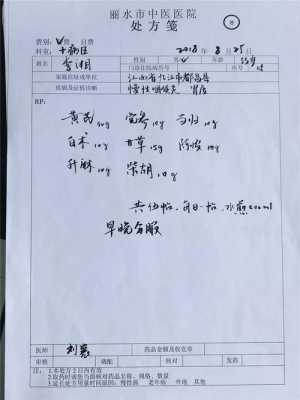 丽水市中医医院
处方笺
费别：√费 日费
科室： 2018年8月25日
姓名 李 性别 男√ 年龄 55岁
门诊住院病历号 床号
家庭住址或单位 江西省九江市都昌县
疾病及症候诊断 慢性咽喉炎 胃
RP:
黄芪30g 党参10g 当归10g
白术10g 甘草15g 陈皮10g
升麻10g 柴胡10g
共伍帖，每日一帖，水煎200ml
早晚分服
医师 药品金额及收讫章
审核 调配 核对 发药
注：1.本处方2日内有效
2.取药时请您当面核对药品名称、规格、数量
3.延长处方用量时间原因：慢性病 老年病 外地 其他